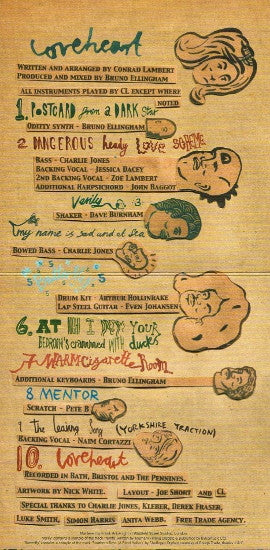 Coveheart
Written and arranged by Conrad Lambert
Produced and mixed by Bruno Ellingham
All instruments played by CL except where
noted
1. POSTCARD from a DARK Star
Oddity synth - Bruno Ellingham
2 DANGEROUS heady LOVE SCHEME
Bass - Charlie Jones
Backing Vocal - Jessica Dacey
2nd Backing Vocal - Zoe Lambert
Additional Harpsichord - John Baggot
Verily
Shaker - Dave Burnham
my name is sad and at sea
Bowed Bass - Charlie Jones
Drum Kit - Arthur Hollinrake
Lap Steel Guitar - Even Johansen
6. AT HI DI YOUR
BEDROOM'S crammed WITH ducks
7 WARM cigarette Room
Additional keyboards - Bruno Ellingham
8 MENTOR
Scratch - Pete B
9 the Leaving Song (YORKSHIRE TRACTION)
Backing Vocal - Naim Cortazzi
10. Coveheart
Recorded in Bath, Bristol and The Pennines.
Artwork by Nick White. Layout - Joe Short and CL
Special thanks to Charlie Jones, Kleber, Derek Fraser,
Luke Smith, Simon Harris, Anita Webb. Free Trade Agency.